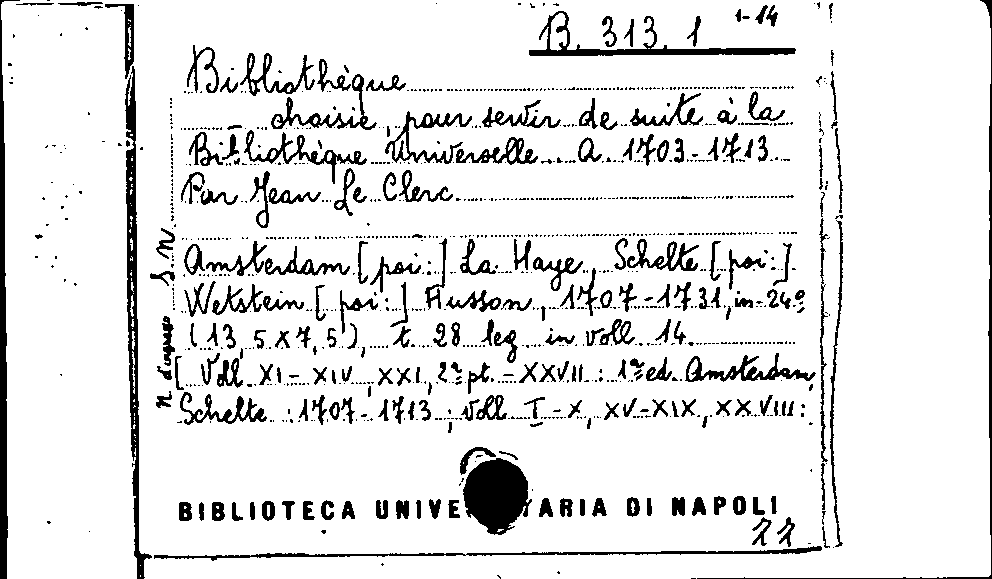 B. 313. 1 1-14
Bibliothèque
choisie, pour servir de suite à la
Bibliothèque Universelle. A. 1703-1713
Par Jean Le Clerc.
Amsterdam [poi:] La Haye, Schelte [poi:]
Wetstein [poi:] Husson, 1707-1731, in-24º
(13,5x7,5), t. 28 leg in voll 14.
[Voll. XI-XIV, XXI, 2ª pt.-XXVII: 1ª ed. Amsterdam,
Schelte: 1707-1713; voll I-X, XV-XIX, XXVIII:
N. d'ingresso S.N.
BIBLIOTECA UNIVERSITARIA DI NAPOLI